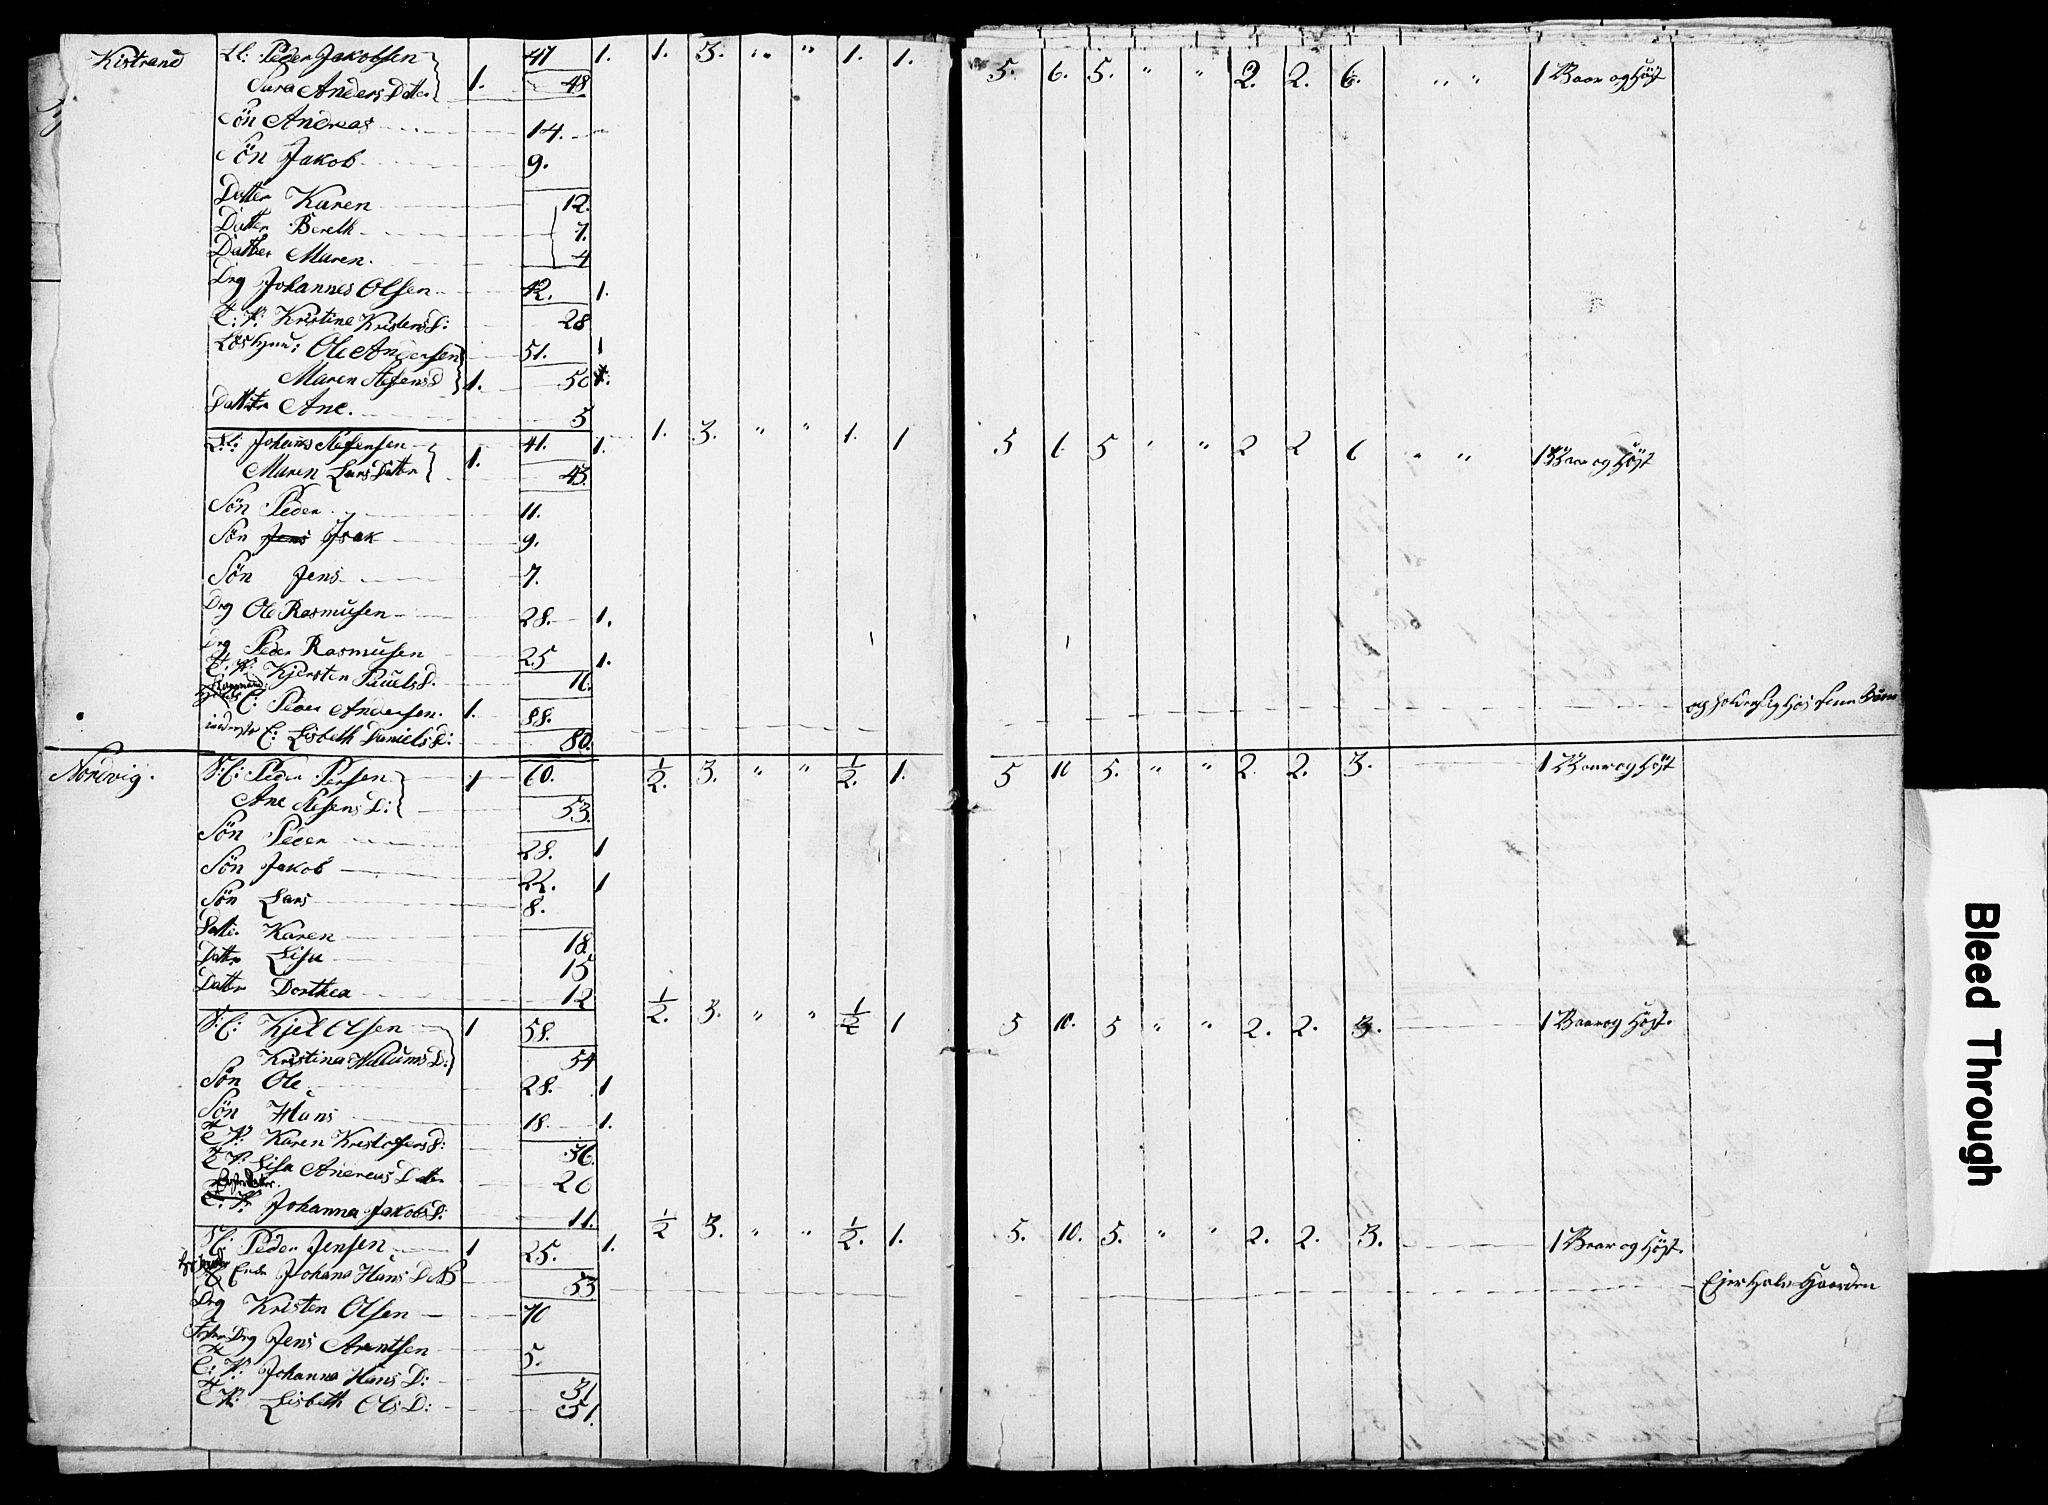 Kistrand L: Peder Jakobsen 47 1. 1. 3. " " 1. 1. 5. 6. 5. " " 2. 2. 6. " " 1 Vaar og Höst
Sara Anders Datter 1. 48
Sön Andreas 14.
Sön Jakob 9.
Datter Karen 12.
Datter Bereth 7.
Datter Maren. 4
Drg Johannes Olsen 42. 1.
T: P: Kristine Kristens D: 28
Ole Andersen 51. 1
Maren D 1. 50
Datter Ane. 5
L: Johans 41. 1. 1. 3. " " 1. 1 5 6. 5 " " 2 2 6 " " 1 Vaar og Höst
Maren Lars Datter 1. 43.
Sön Peder 11.
Sön Jens Isak 9.
Sön Jens 7.
Drg Ole Rasmusen 28. 1.
Drg Peder Rasmusen 25 1.
T. P: Kjersten Pauels D. 16.
E: Peder Andersen. 1. 88.
E: Lisbeth Daniels D: 80.
Nordvig. Peder Persen 1 60. ½. 3. " " ½. 1. 5 10 5. " " 2. 2. 3. 1 Vaar og Höst
Ane D: 53.
Sön Peder 28. 1
Sön Jakob 22. 1
Sön Lars 8.
Datter Karen 18.
Datter Lisa 15
Datter Dorthea 12
Kjel Olsen 1 58. ½. 3. " " ½ 1 5 10. 5 " " 2. 2. 3. 1 Vaar og Höst.
Kristina D: 54
Sön Ole 28. 1
Sön Hans 18. 1.
T P: Karen Kristofers D: 36.
T P: Lisa Andreas Datter 26
T. P. Johanna Jakobs D: 11.
Peder Jensen 1 25. 1. ½ 3. " " ½. 1. 5. 10. 5. " " 2. 2. 3. 1 Vaar og Höst.
Johana Hans 53 Ejer Halv Gaarden
Drg Kristen Olsen 70
Drg Jens Arentsen 5.
T: P: Johanna Hans D: 31
T P: Lisbeth Ols D: 51.
Bleed Through